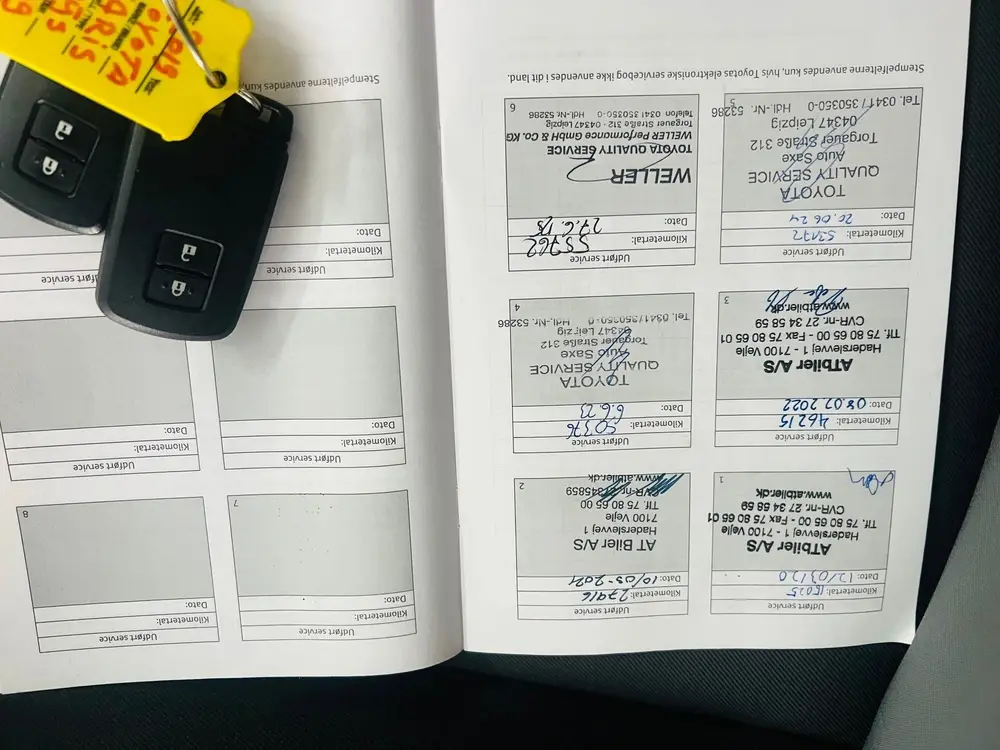 Udført service
Kilometertal: 15025
Dato: 12/03/20
ATbiler A/S
Haderslevvej 1 - 7100 Vejle
Tlf. 75 80 65 00 - Fax 75 80 65 01
CVR-nr. 27 34 58 59
www.atbiler.dk
1
Udført service
Kilometertal: 27916
Dato: 10/05-2021
AT Biler A/S
Haderslevvej 1
7100 Vejle
Tlf. 75 80 65 00
CVR-nr. 27345859
www.atbiler.dk
2
Udført service
Kilometertal: 46215
Dato: 08.02.2022
ATbiler A/S
Haderslevvej 1 - 7100 Vejle
Tlf. 75 80 65 00 - Fax 75 80 65 01
CVR-nr. 27 34 58 59
www.atbiler.dk
3
Udført service
Kilometertal: 50376
Dato: 6.6.23
TOYOTA
QUALITY SERVICE
Auto Saxe
Torgauer Straße 312
04347 Leipzig
Tel. 0341/350350-0 Hdl.-Nr. 53286
4
Udført service
Kilometertal: 53172
Dato: 20.06.24
TOYOTA
QUALITY SERVICE
Auto Saxe
Torgauer Straße 312
04347 Leipzig
Tel. 0341/350350-0 Hdl.-Nr. 53286
5
Udført service
Kilometertal: 55762
Dato: 27.6.25
WELLER
TOYOTA QUALITY SERVICE
WELLER Performance GmbH & Co. KG
Torgauer Straße 312 · 04347 Leipzig
Telefon 0341 350350-0 Hdl.-Nr. 53286
6
Stempelfelterne anvendes kun, hvis Toyotas elektroniske servicebog ikke anvendes i dit land.
Udført service
Kilometertal:
Dato:
7
Udført service
Kilometertal:
Dato:
8
Udført service
Kilometertal:
Dato:
Udført service
Kilometertal:
Dato:
Udført service
Kilometertal:
Dato:
Udført service
Stempelfelterne anvendes kun,
2019
TOYOTA
YARIS